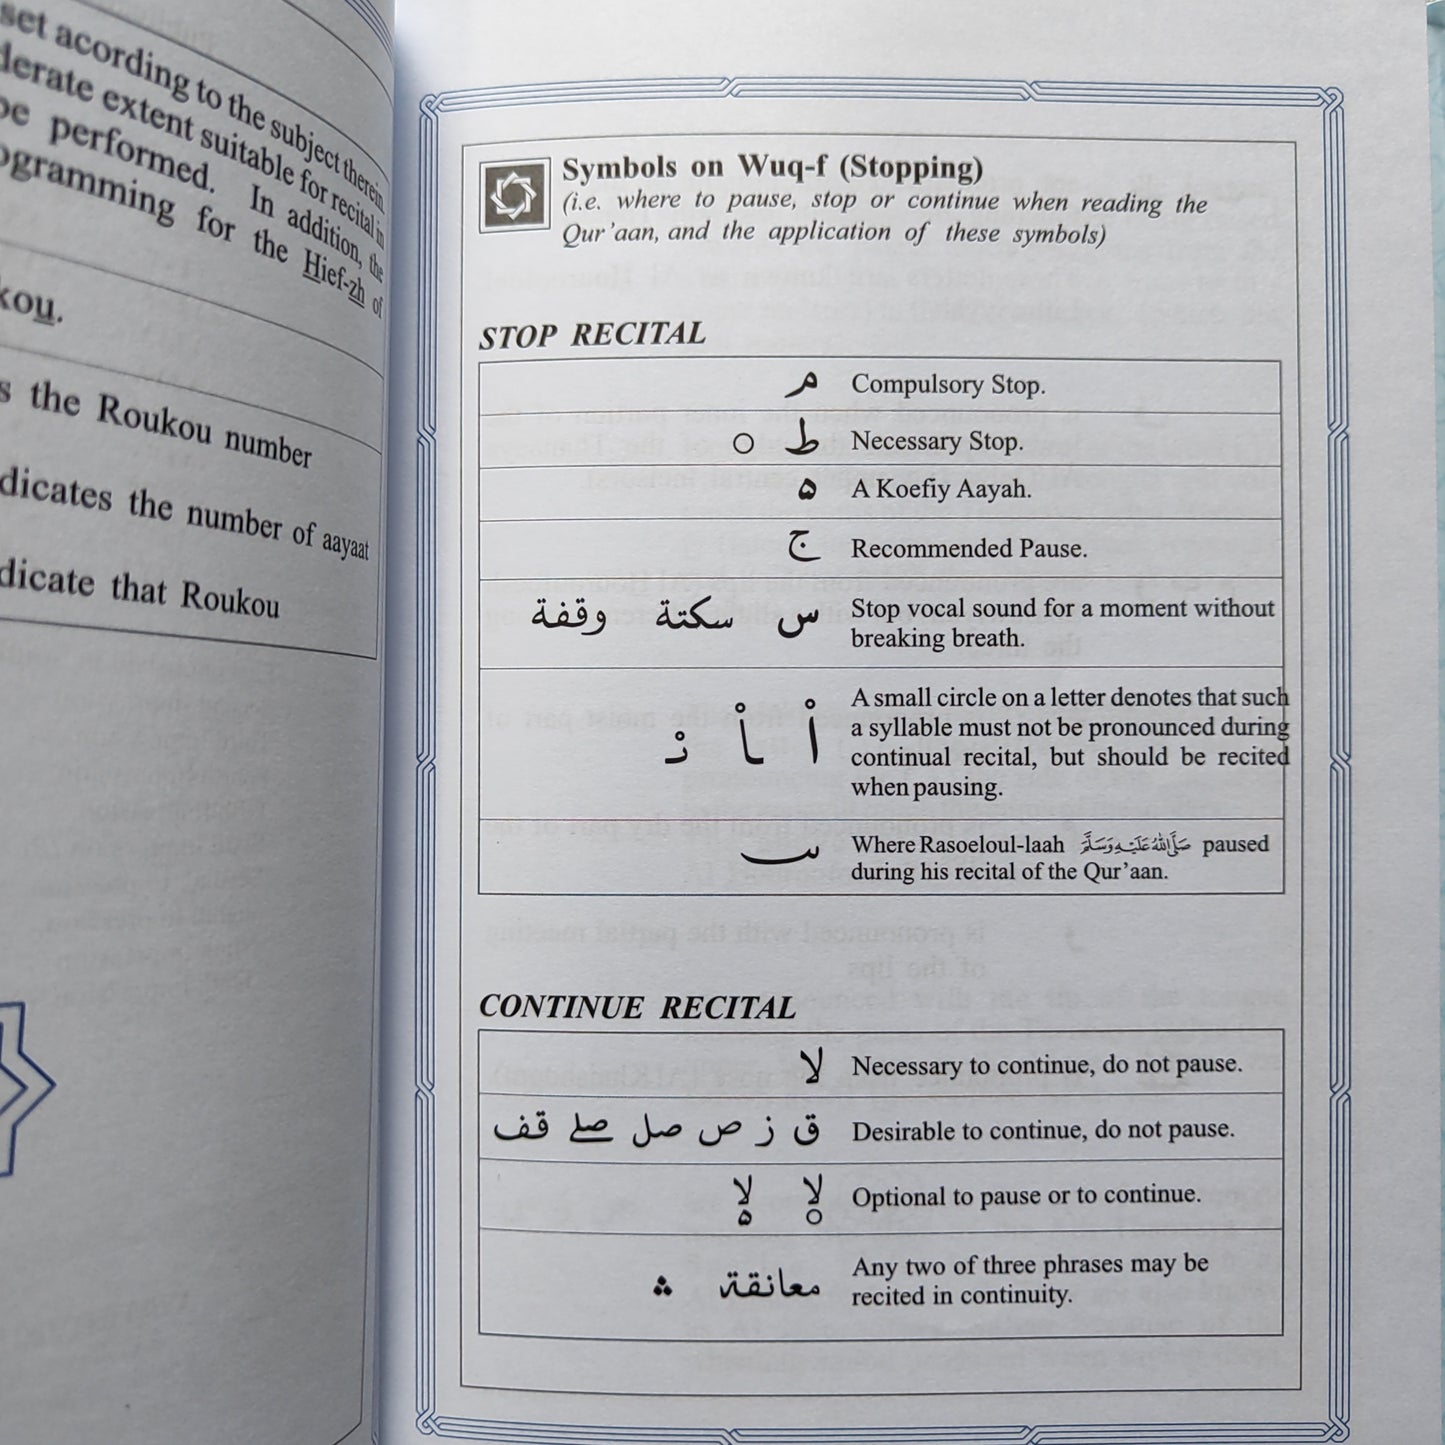 set acording to the subject therein
derate extent suitable for recital in
be performed. In addition, the
ogramming for the Hief-zh of
kou.
s the Roukou number
dicates the number of aayaat
dicate that Roukou
Symbols on Wuq-f (Stopping)
(i.e. where to pause, stop or continue when reading the
Qur'aan, and the application of these symbols)
STOP RECITAL
م Compulsory Stop.
ط ○ Necessary Stop.
۵ A Koefiy Aayah.
ج Recommended Pause.
س سكتة وقفة Stop vocal sound for a moment without
breaking breath.
A small circle on a letter denotes that such
a syllable must not be pronounced during
continual recital, but should be recited
when pausing.
Where Rasoeloul-laah صَلَّى اللهُ عَلَيْهِ وَسَلَّمَ paused
during his recital of the Qur'aan.
CONTINUE RECITAL
لا Necessary to continue, do not pause.
ق ز ص صل صلے قف Desirable to continue, do not pause.
لا○ لا۵ Optional to pause or to continue.
معانقة ∴ Any two of three phrases may be
recited in continuity.